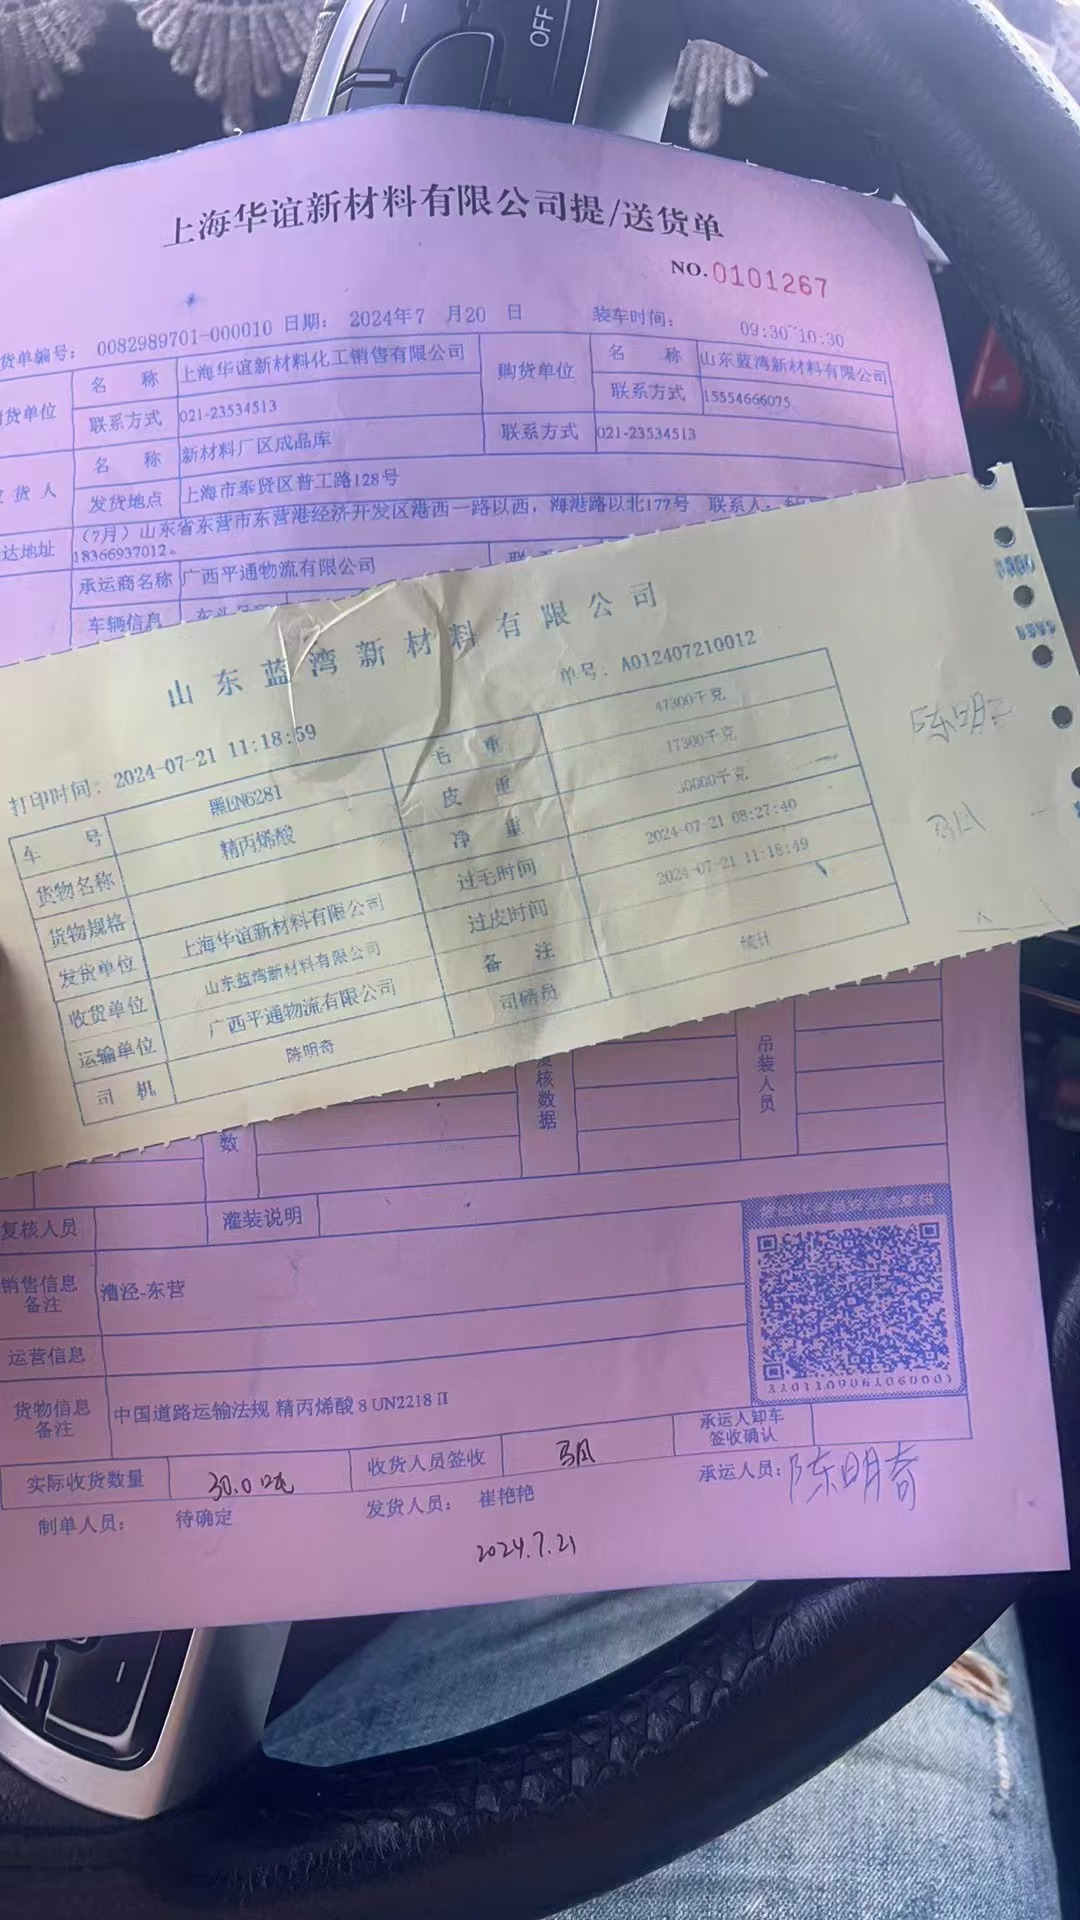 OFF
上海华谊新材料有限公司提/送货单
NO.0101267
货单编号： 0082989701-000010 日期： 2024年7 月20 日 装车时间： 09:30~10:30
货单位 名 称 上海华谊新材料化工销售有限公司 购货单位 名 称 山东蓝湾新材料有限公司
联系方式 021-23534513 联系方式 15554666075
货人 名 称 新材料厂区成品库 联系方式 021-23534513
发货地点 上海市奉贤区普工路128号
达地址 （7月）山东省东营市东营港经济开发区港西一路以西，海港路以北177号 联系人：
18366937012。
承运商名称 广西平通物流有限公司
车辆信息
山东蓝湾新材料有限公司
单号：A012407210012
打印时间：2024-07-21 11:18:59
车 号 黑EN6281 毛 重 47300千克
货物名称 精丙烯酸 皮 重 17300千克
货物规格 净 重 0000千克
发货单位 上海华谊新材料有限公司 过毛时间 2024-07-21 08:27:40
收货单位 山东蓝湾新材料有限公司 过皮时间 2024-07-21 11:18:49
运输单位 广西平通物流有限公司 备 注
司 机 陈明奇 司磅员 统计
陈明
数 复核数据 吊装人员
复核人员 灌装说明
销售信息备注 漕泾-东营
运营信息
货物信息备注 中国道路运输法规 精丙烯酸 8 UN2218 II
3101109061060001
实际收货数量 30.0吨 收货人员签收 承运人卸车签收确认
制单人员： 待确定 发货人员： 崔艳艳 承运人员：陈明奇
2024.7.21